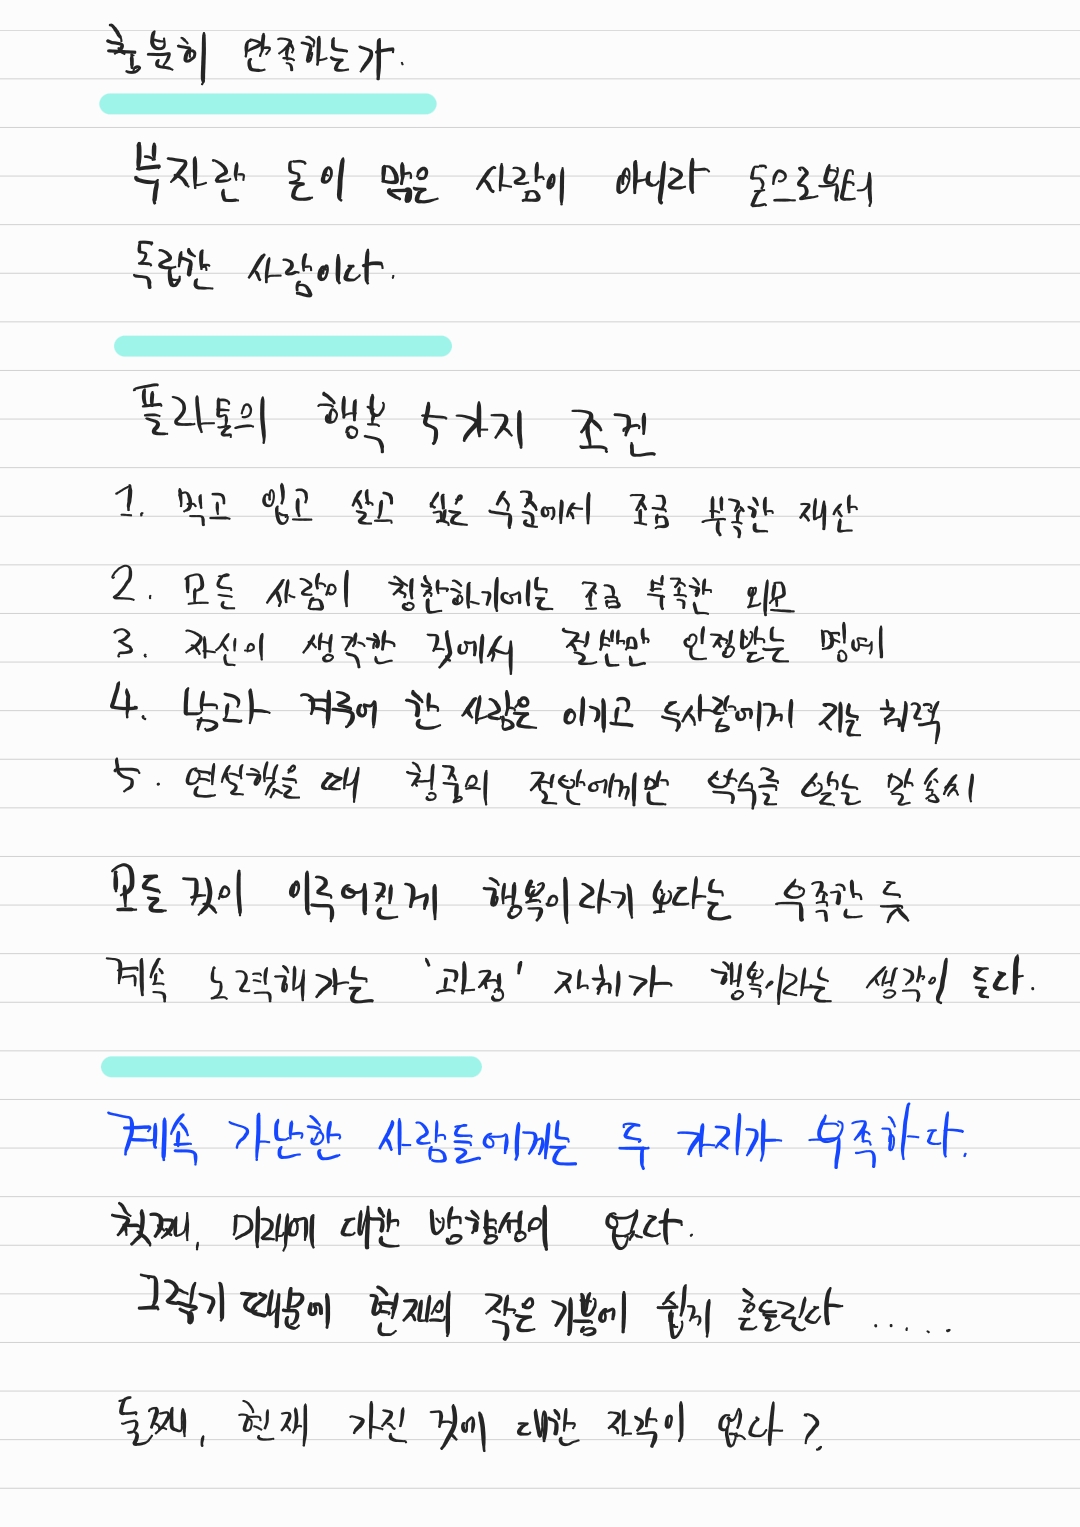 충분히 만족하는가.
부자란 돈이 많은 사람이 아니라 돈으로부터
독립한 사람이다.
플라톤의 행복 5가지 조건
1. 먹고 입고 살고 싶은 수준에서 조금 부족한 재산
2. 모든 사람이 칭찬하기에는 조금 부족한 외모
3. 자신이 생각한 것에서 절반만 인정받는 명예
4. 남과 겨루어 한 사람은 이기고 두사람에게 지는 체력
5. 연설했을 때 청중의 절반에게만 박수를 받는 말솜씨
모든 것이 이루어진게 행복이라기 보다는 부족한 듯
계속 노력해가는 '과정' 자체가 행복이라는 생각이 든다.
계속 가난한 사람들에게는 두 가지가 부족하다.
첫째, 미래에 대한 방향성이 없다.
그렇기 때문에 현재의 작은 기쁨에 쉽게 흔들린다 .....
둘째, 현재 가진 것에 대한 자각이 없다?